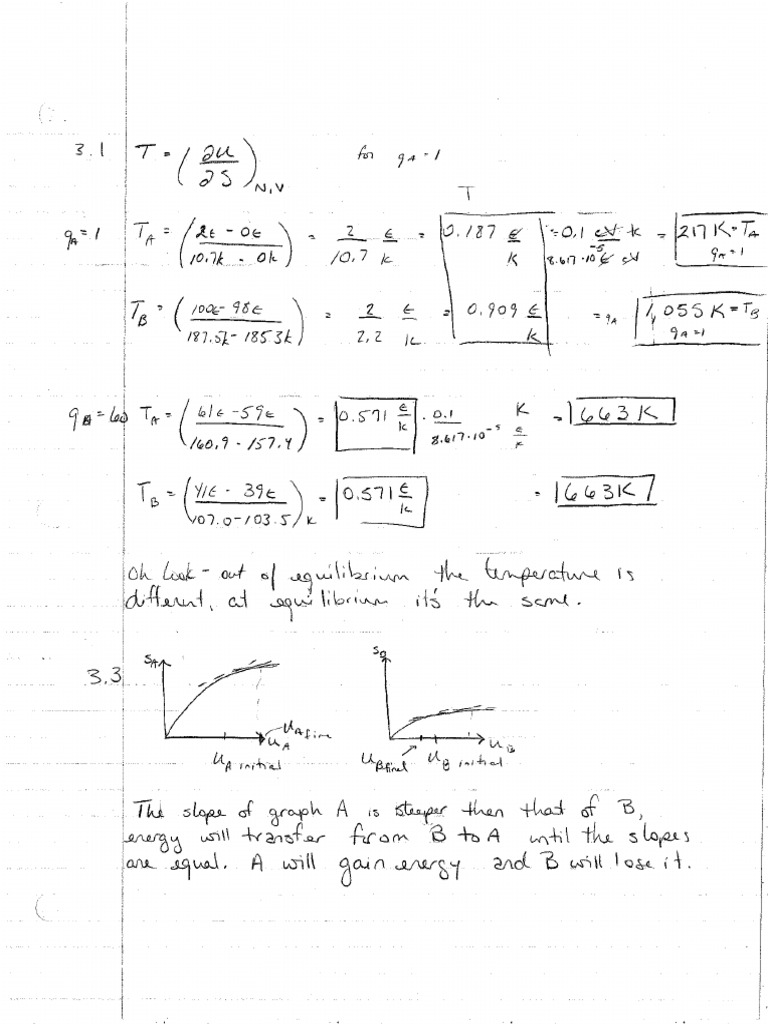 3.1 T = (∂U/∂S)N,V for qA=1
T
qA=1 TA = (2ϵ - 0ϵ / 10.7k - 0k) = 2/10.7 ϵ/k = 0.187 ϵ/k = 0.1 eV k / 8.617·10^-5 ϵ eV = 217K = TA qA=1
TB = (100ϵ - 98ϵ / 187.5k - 185.3k) = 2/2.2 ϵ/k = 0.909 ϵ/k = qA 1,055K = TB qA=1
q=60 TA = (61ϵ - 59ϵ / 160.9 - 157.4) = 0.571 ϵ/k · 0.1 / 8.617·10^-5 K / ϵ/k = 663K
TB = (41ϵ - 39ϵ / 107.0 - 103.5)k = 0.571 ϵ/k = 663K
Oh look - out of equilibrium the temperature is
different, at equilibrium it's the same.
3.3 SA SB
UA final
UA UB
UA initial UB final UB initial
The slope of graph A is steeper then that of B,
energy will transfer from B to A until the slopes
are equal. A will gain energy and B will lose it.